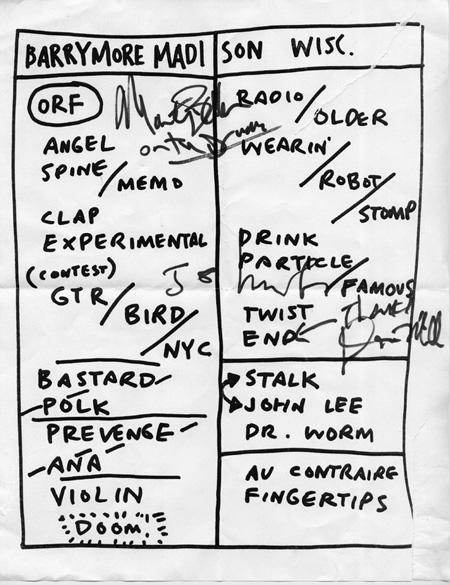 BARRYMORE MADISON WISC.
ORF
ANGEL
SPINE/MEMO
CLAP
EXPERIMENTAL
(CONTEST)
GTR/BIRD/NYC
BASTARD
POLK
PREVENGE
ANA
VIOLIN
DOOM
RADIO/OLDER
WEARIN'/ROBOT/STOMP
DRINK
PARTICLE/FAMOUS
TWIST
END
STALK
JOHN LEE
DR. WORM
AU CONTRAIRE
FINGERTIPS